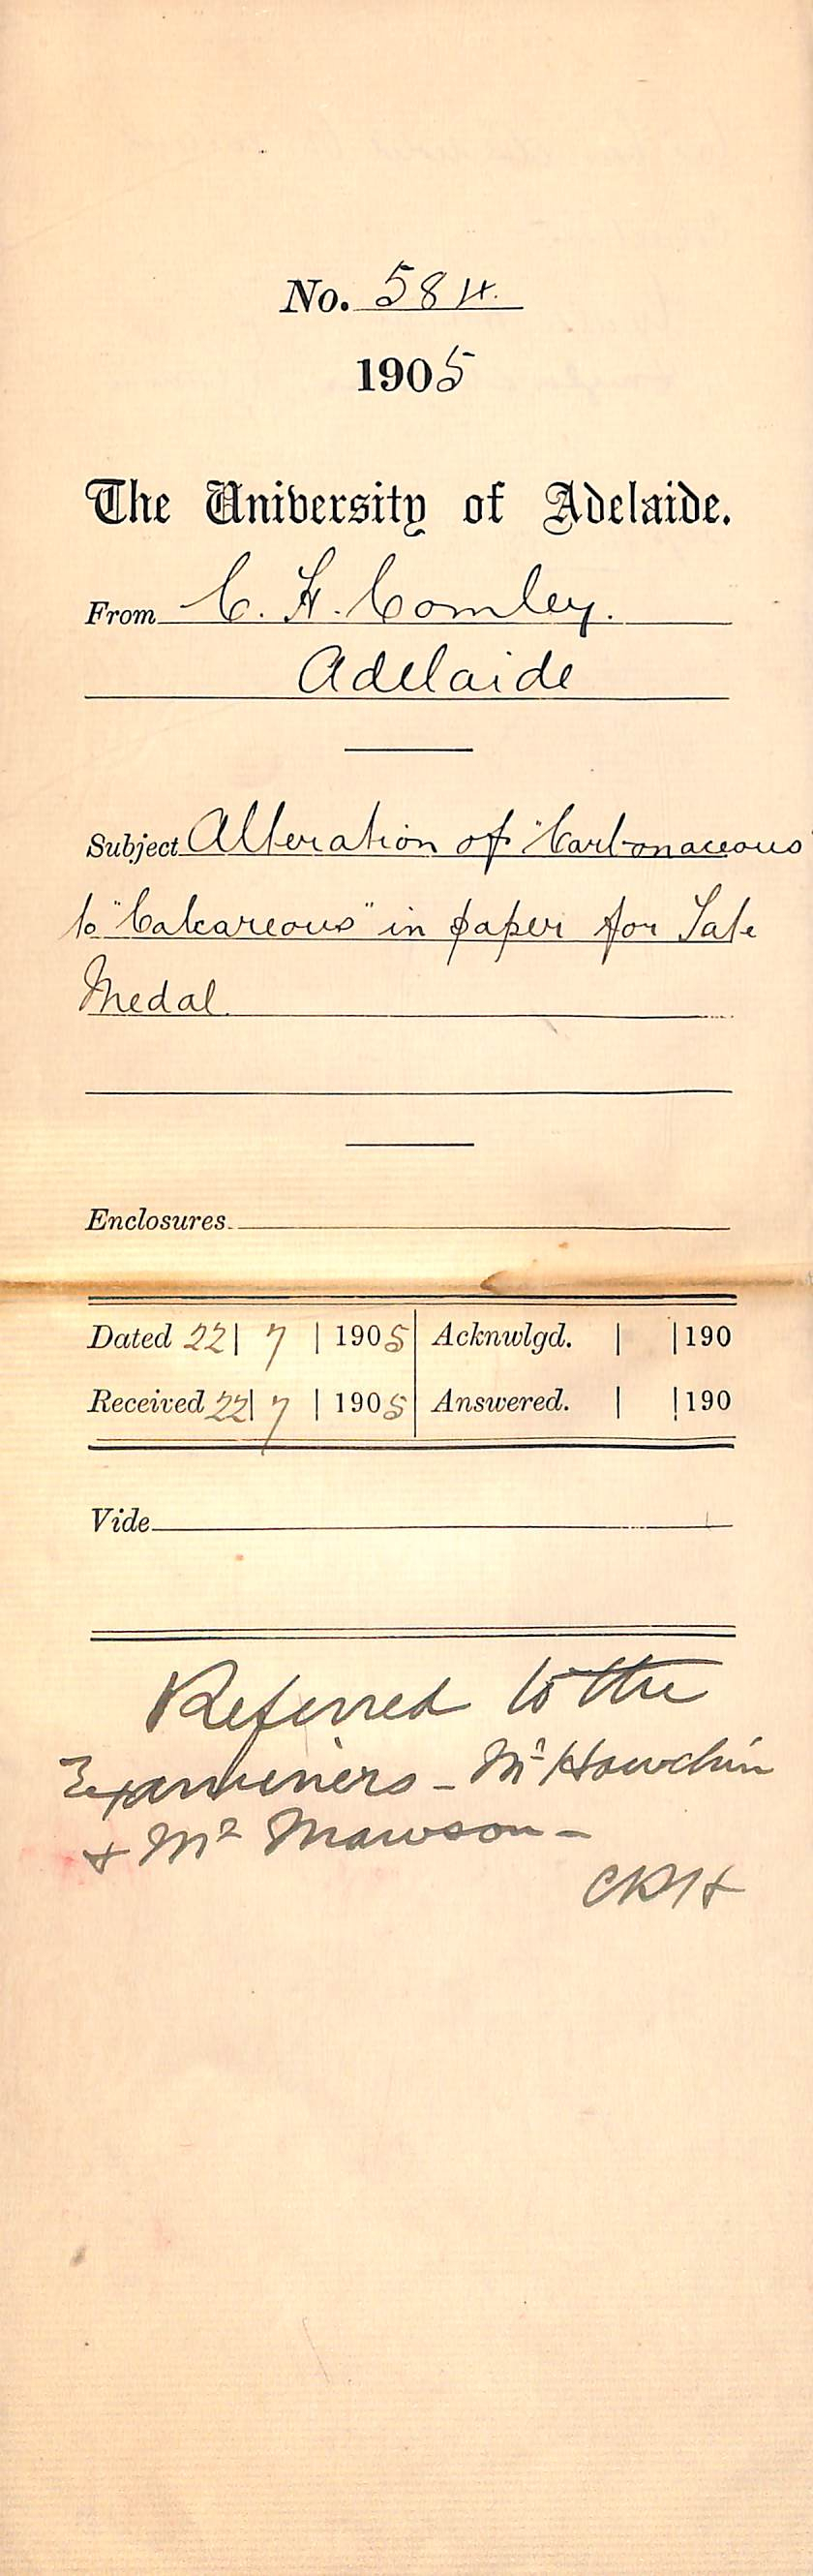 No. 584.
1905
The University of Adelaide.
From C. H. Comley.
Adelaide
Subject Alteration of "Carbonaceous"
to "Calcareous" in paper for Tate
Medal.
Enclosures.
Dated 22| 7 | 1905 Acknwlgd. | |190
Received 22| 7 | 1905 Answered. | |190
Vide
Referred to the
Examiners - Mr Howchin
& Mr Mawson -
CRH